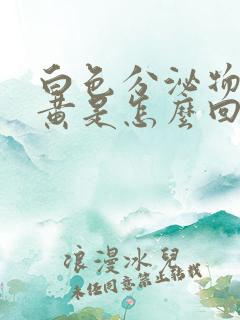 白色分泌物
黄是怎麼回
浪漫冰兒
未经同意禁止转载